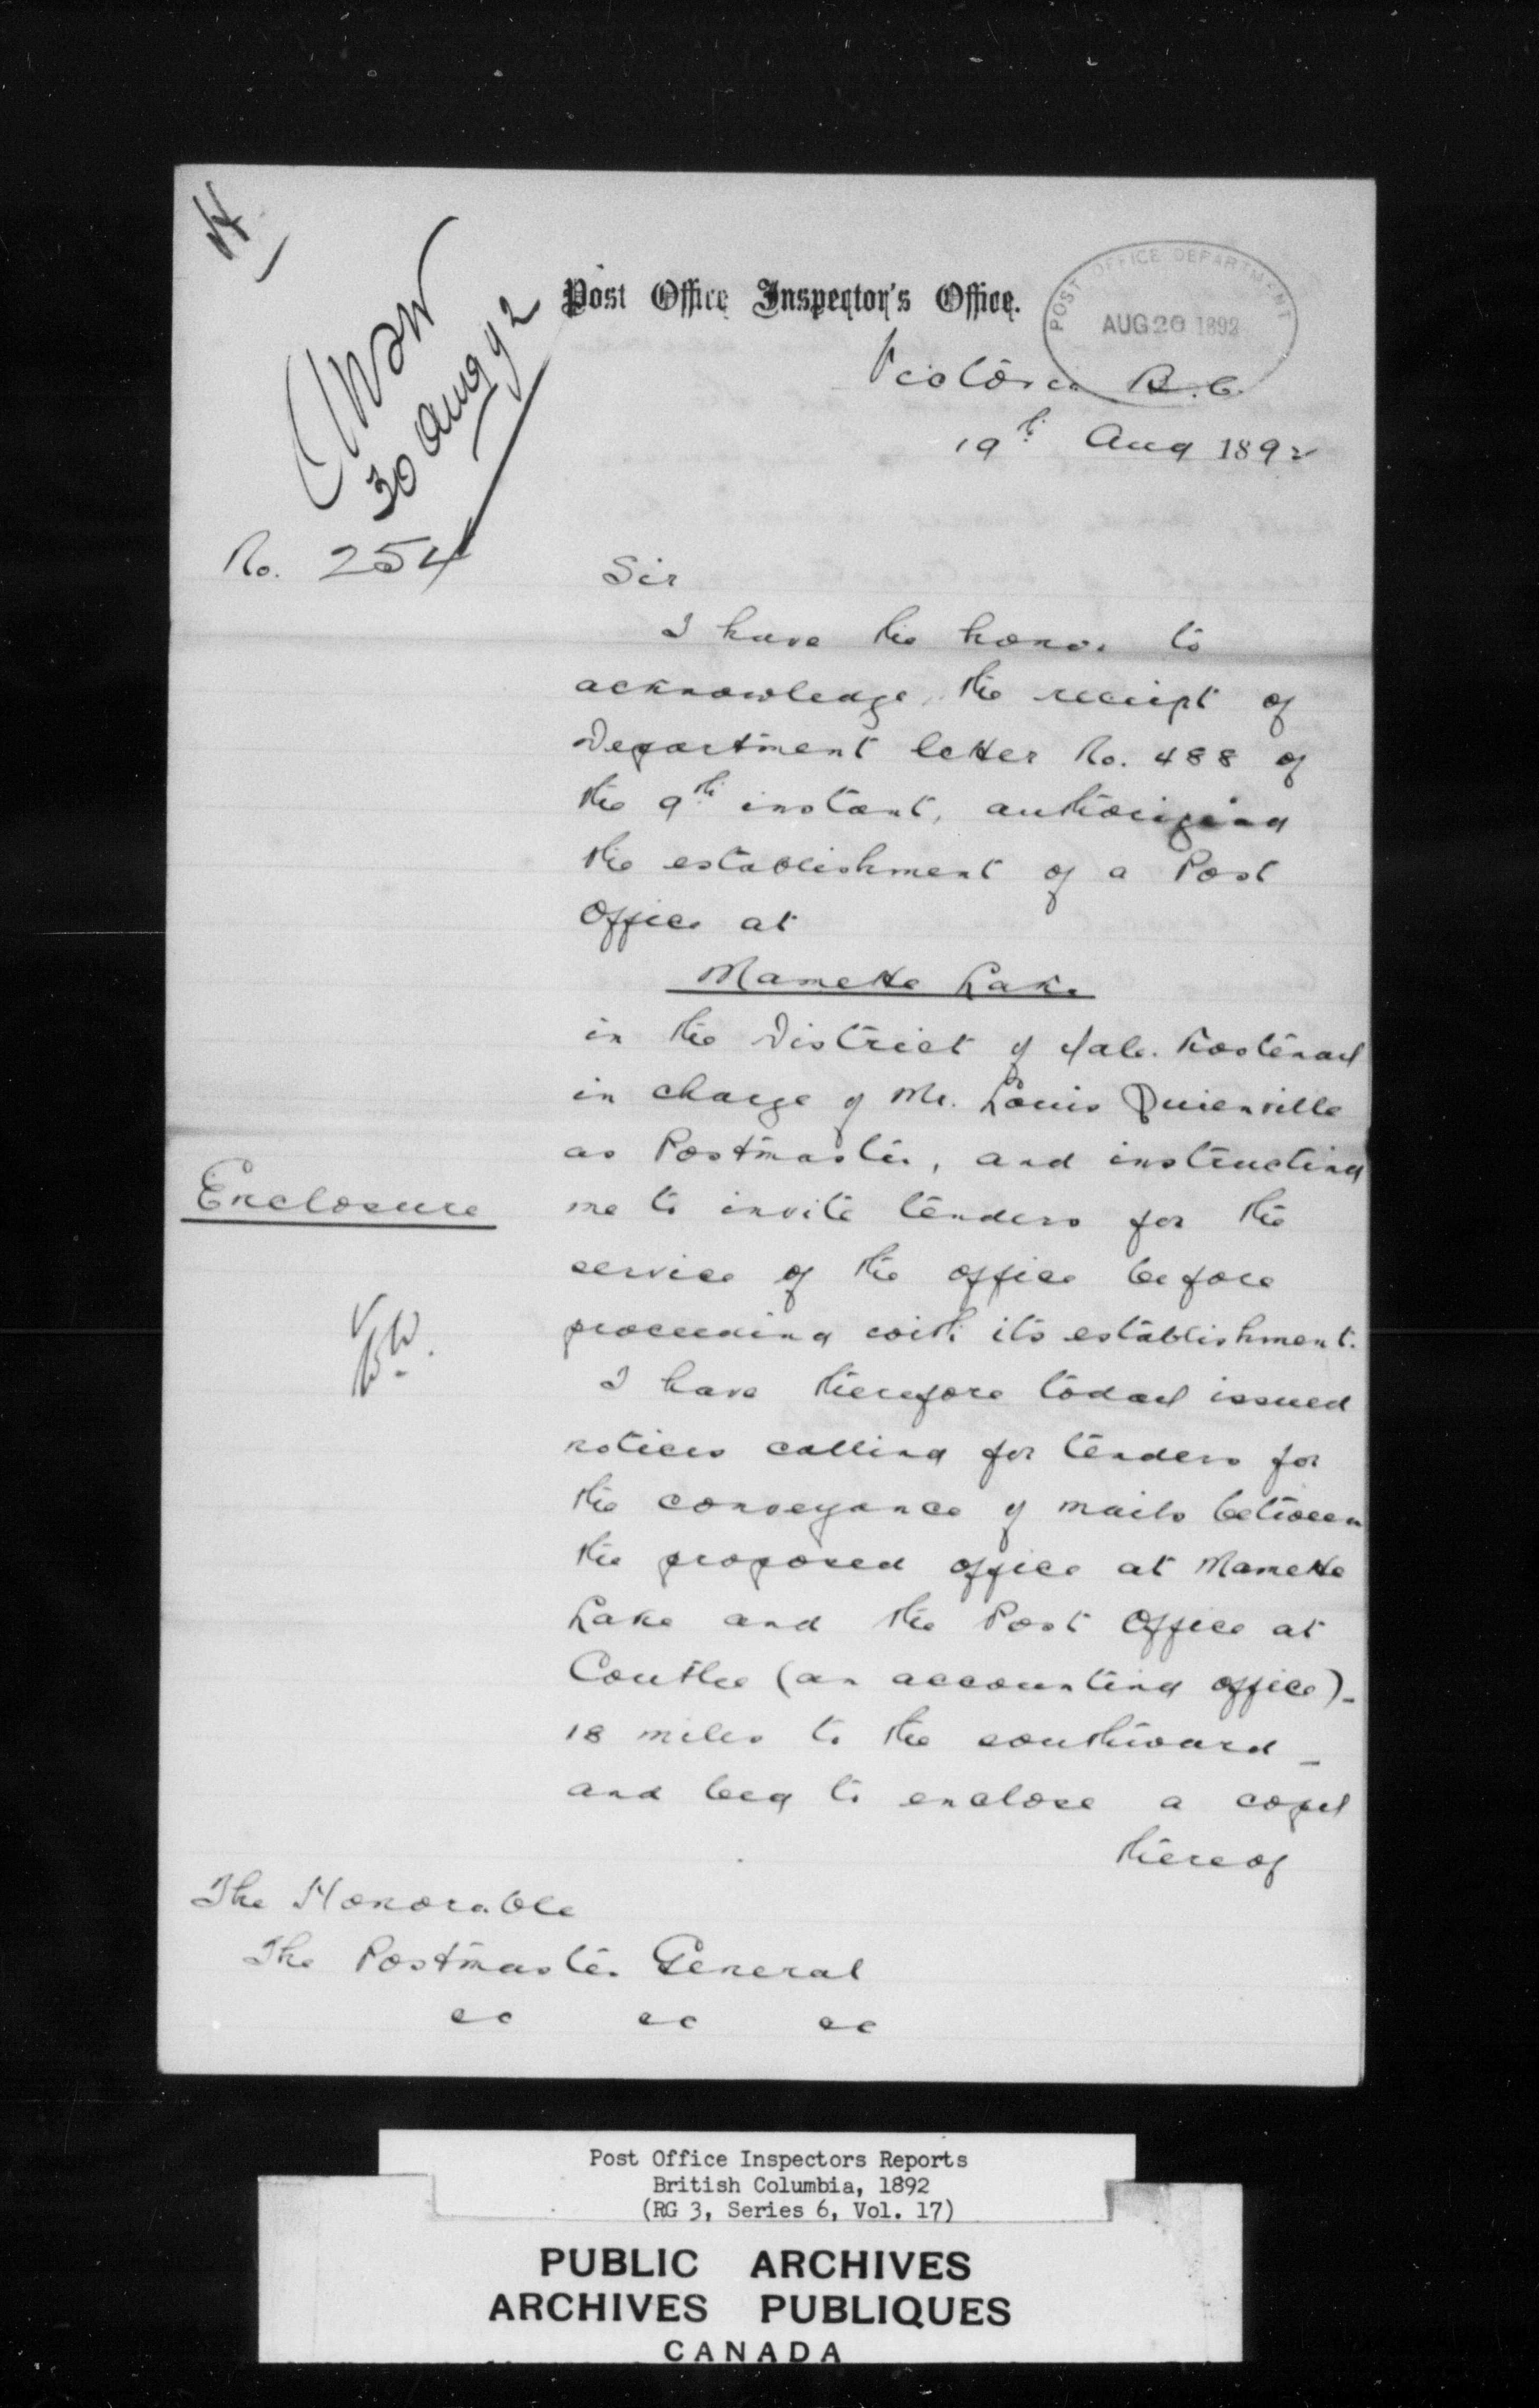 Post Office Inspector's Office.
POST OFFICE DEPARTMENT
AUG 20 1892
Victoria B.C.
19th Aug 1892
30 Aug 92
No. 254
Sir
I have the honor to
acknowledge the receipt of
Department letter No. 488 of
the 9th instant, authorizing
the establishment of a Post
Office at
Mamette Lake
in the District of Yale. Kootenay
in charge of Mr. Louis Quienville
as Postmaster, and instructing
Enclosure
me to invite tenders for the
service of the office before
proceeding with its establishment.
I have therefore today issued
notices calling for tenders for
the conveyance of mails between
the proposed office at Mamette
Lake and the Post Office at
Coutlee (an accounting office)_
18 miles to the southward _
and beg to enclose a copy
thereof
The Honorable
The Postmaster General
&c &c &c
Post Office Inspectors Reports
British Columbia, 1892
(RG 3, Series 6, Vol. 17)
PUBLIC ARCHIVES
ARCHIVES PUBLIQUES
CANADA